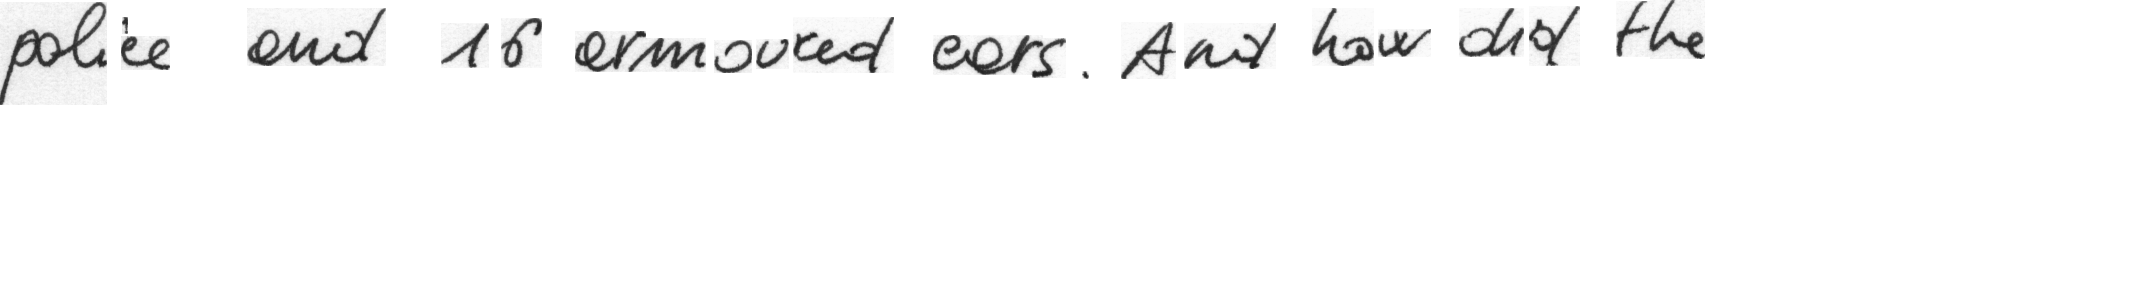 police and 16 armoured cars. And how did the